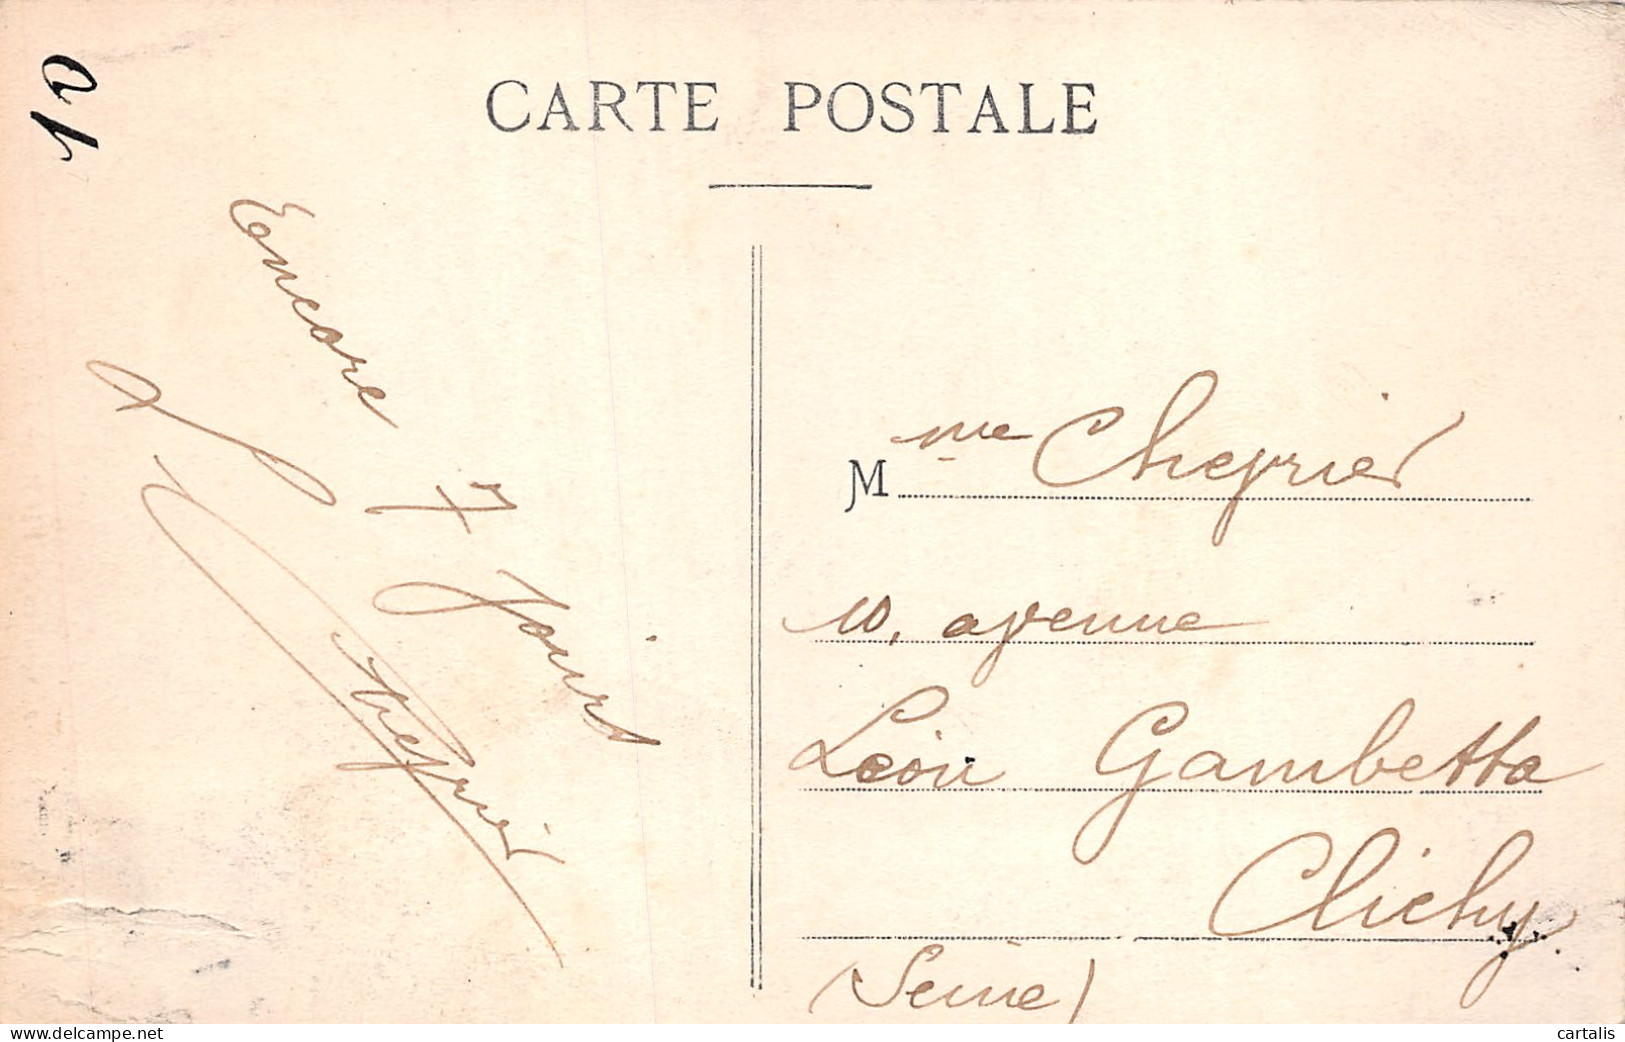 10
CARTE POSTALE
Encore
7 Jours
Cheyrier
Mme Cheyrier
10, avenue
Léon Gambetta
Clichy
(Seine)
www.delcampe.net
cartalis